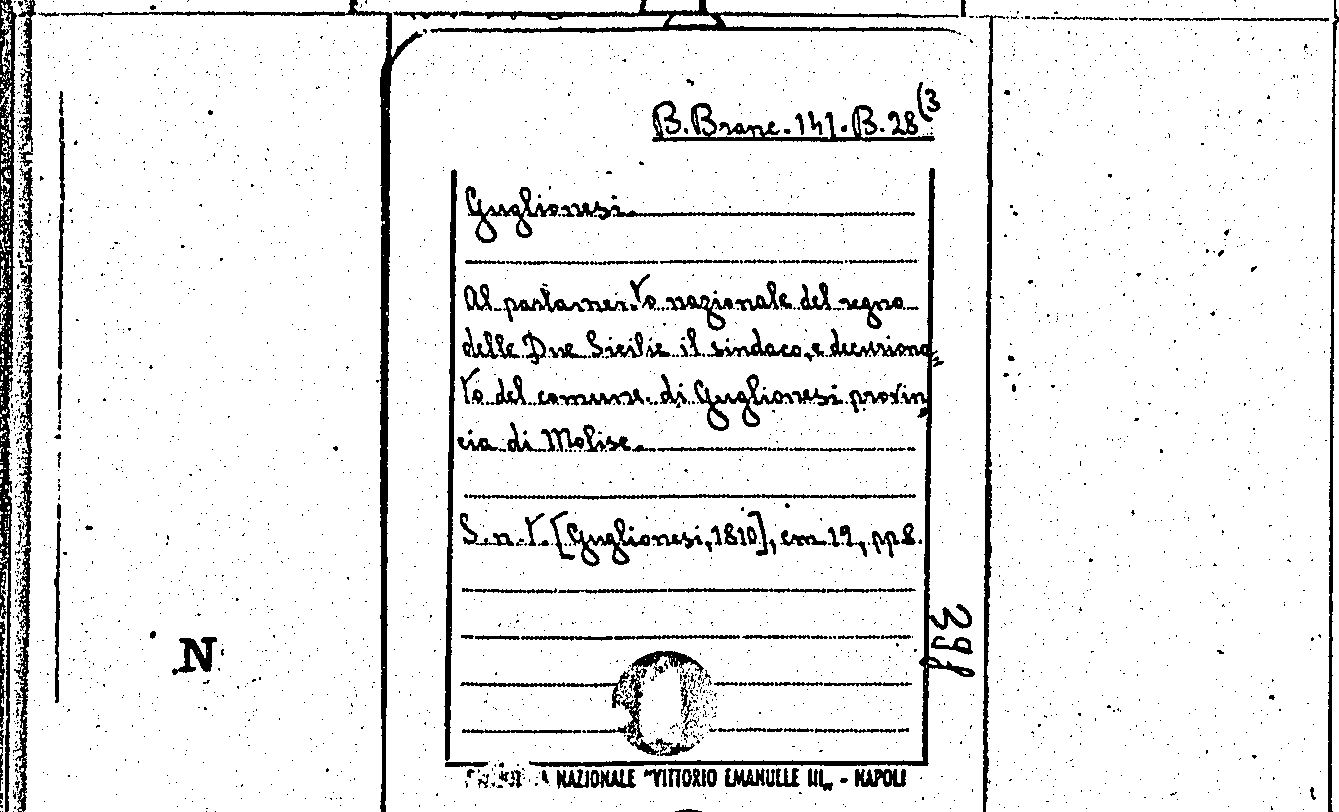 B. Branc. 141. B. 28 (3
Guglionesi.
Al parlamento nazionale del regno
delle Due Sicilie il sindaco, e decuriona=
to del comune di Guglionesi provin=
cia di Molise.
S. n. t. [Guglionesi, 1810], cm 19, pp 8.
398
N
NAZIONALE "VITTORIO EMANUELLE III„ - NAPOLI